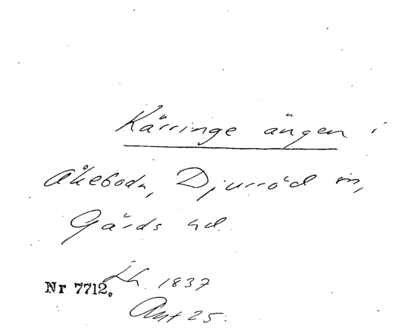 Kärringe ängen i
Åkeboda, Djurröd sn,
Gärds hd.
Nr 7712. 1837
Ant 25.